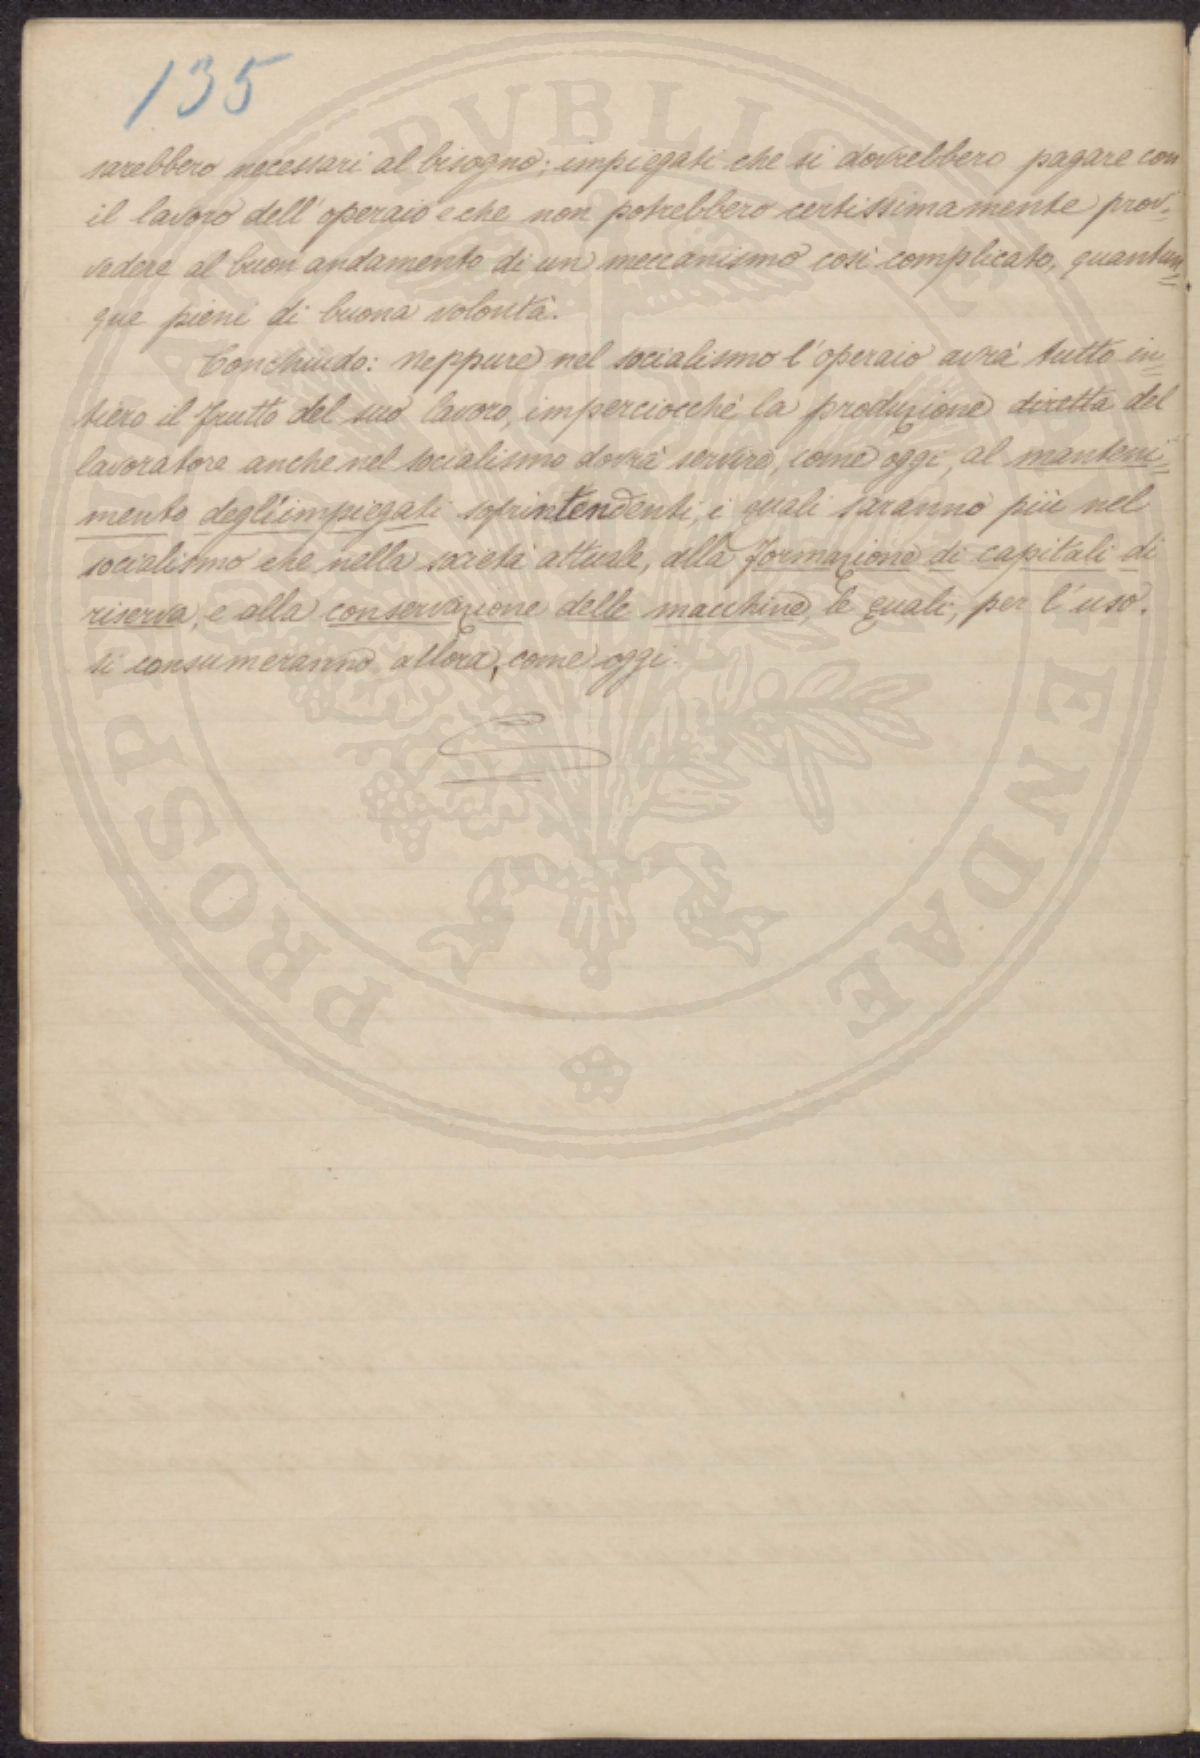 135
sarebbero necessari al bisogno; impiegati che si dovrebbero pagare con
il lavoro dell'operaio e che non potrebbero certissimamente prov=
vedere al buon andamento di un meccanismo così complicato, quantun=
que pieni di buona volontà.
Conchiudo: neppure nel socialismo l'operaio avrà tutto in=
tiero il frutto del suo lavoro, imperciocchè la produzione diretta del
lavoratore anche nel socialismo dovrà servire, come oggi, al manteni=
mento degli impiegati soprintendenti, i quali saranno più nel
socialismo che nella società attuale, alla formazione di capitali di
riserva, e alla conservazione delle macchine, le quali, per l'uso.
si consumeranno allora, come oggi.
PROSPERITATI PVBLICAE AVGENDAE